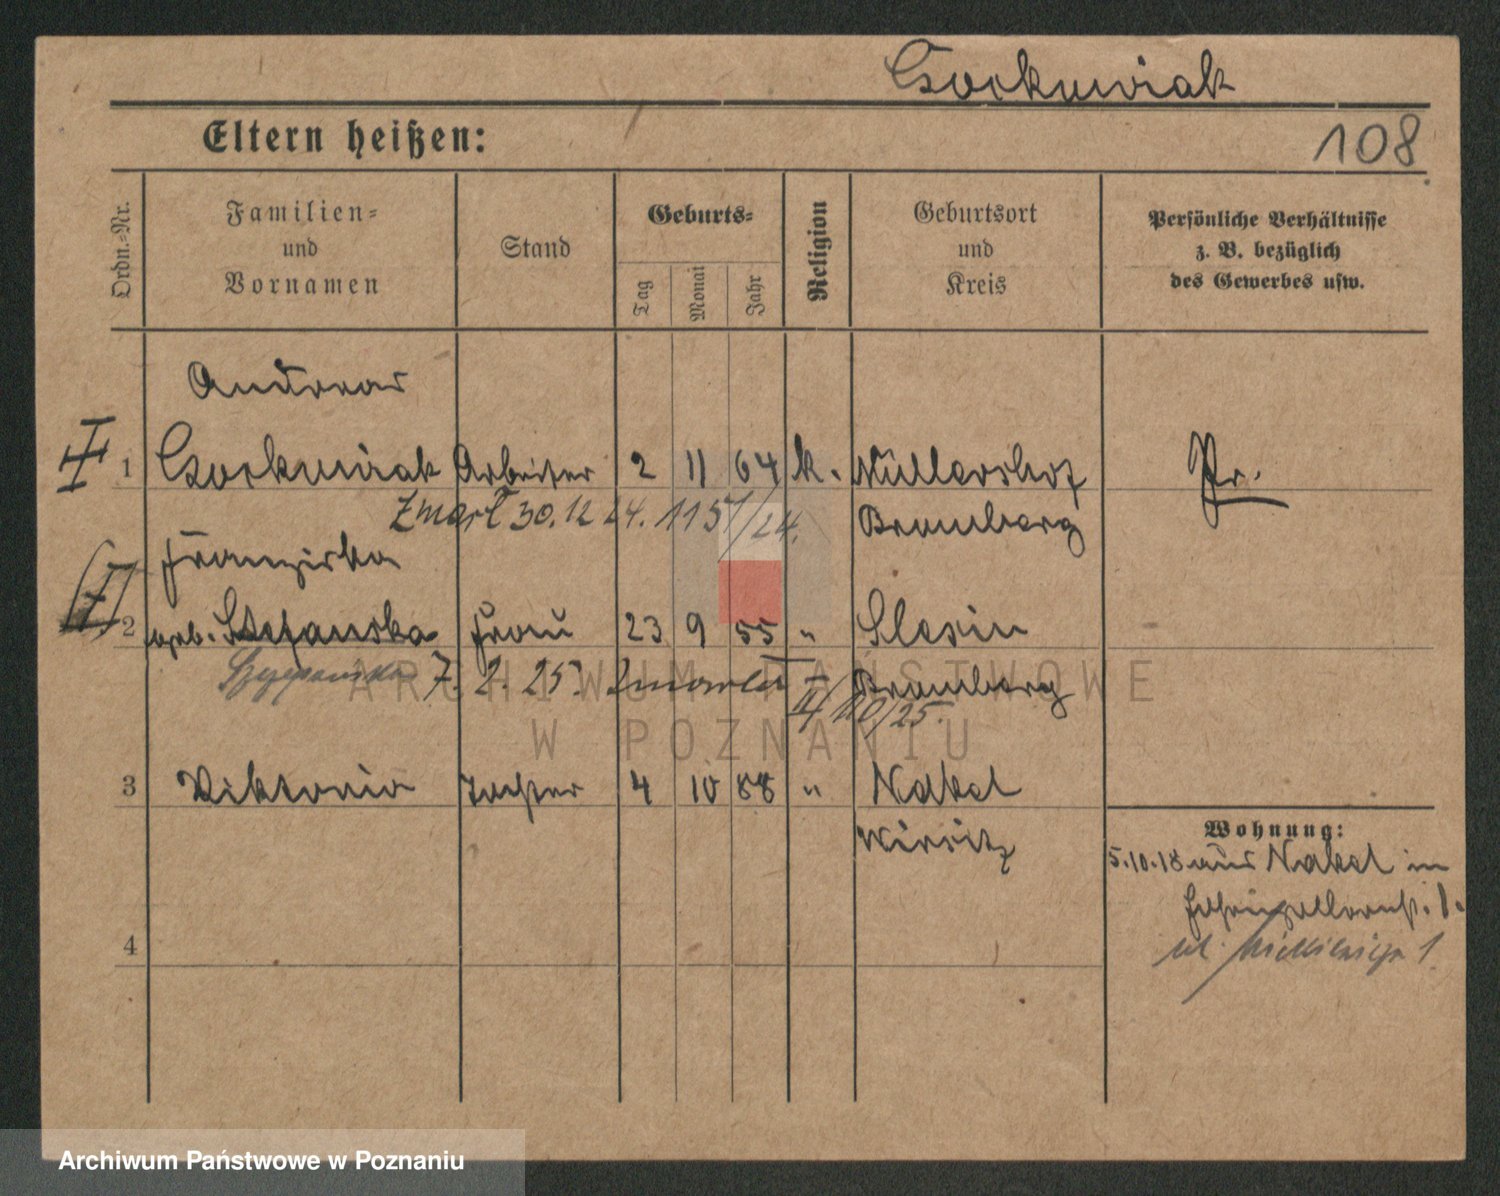 Czerkawiak
108
Eltern heißen:
Ordn.-Nr.
Familien-
und
Vornamen
Stand
Geburts-
Tag
Monat
Jahr
Religion
Geburtsort
und
Kreis
Persönliche Verhältnisse
z. B. bezüglich
des Gewerbes usw.
Andreas
1 Arbeiter 2 11 64 k. Müllershof
Pr.
Zmarł 30.12 24. 1151/24. Bromberg
Franziska
2 geb. Stefanska Frau 23 9 55 " Slesin
Szczepanska 7. 2. 25. Zmarła Bromberg
II/110/25.
3 Viktoria Tochter 4 10 88 " Nakel
Wirsitz
Wohnung:
5.10.18 aus Nakel in
Hohenzollernst. 1.
ul. Mickiewicza 1.
4
ARCHIWUM PAŃSTWOWE
W POZNANIU
Archiwum Państwowe w Poznaniu